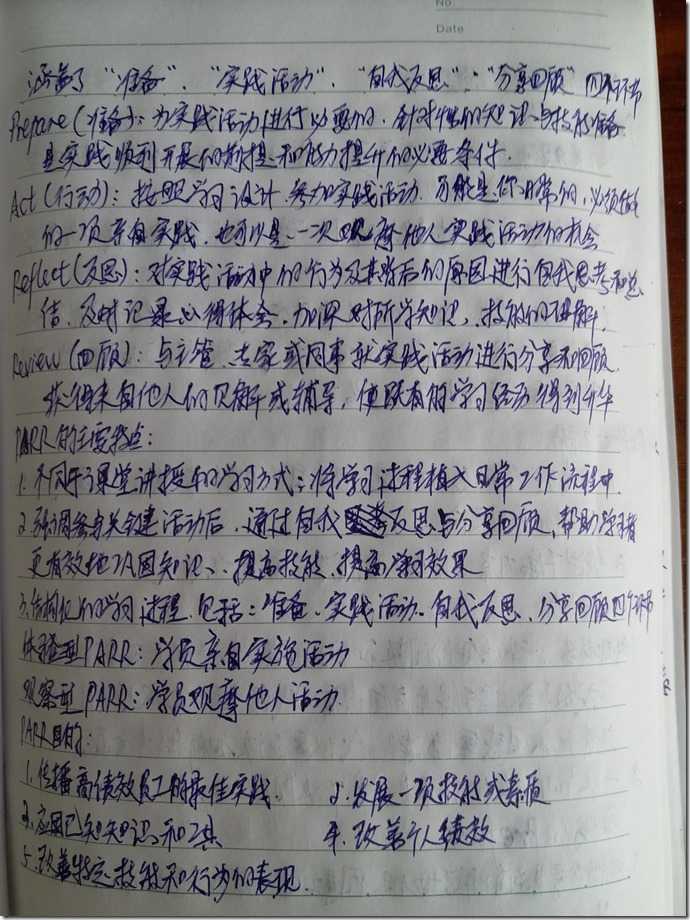 No
Date
涵盖了“准备”、“实践活动”、“自我反思”、“分享回顾”四个环节
Prepare(准备):为实践活动进行必要的、针对性的知识与技能准备
是实践顺利开展的前提和能力提升的必要条件.
Act(行动):按照学习设计.参加实践活动.可能是你日常的,必须做的
的一项亲自实践,也可以是一次观摩他人实践活动的机会
Reflect(反思):对实践活动中的行为及其背后的原因进行自我思考和总
结.及时记录心得体会.加深对所学知识、技能的理解.
Review(回顾):与主管、专家或同事就实践活动进行分享和回顾.
获得来自他人的见解或辅导,使既有的学习活动得到升华
PARR的主要特点:
1.不同于课堂讲授的学习方式;将学习过程植入日常工作流程中.
2.强调参与关键活动后,通过自我反思与分享回顾,帮助学习者
更有效地巩固知识、提高技能、提高学习效果
3.结构化的学习进程,包括:准备、实践活动、自我反思、分享回顾四个环节
体验型PARR:学员亲自实施活动
观察型PARR:学员观摩他人活动.
PARR目的:
1.传播高绩效员工的最佳实践. 2.发展一项技能或素质
3.应用已知知识和工具 4.改善个人绩效
5.改善特定技能和行为的表现.